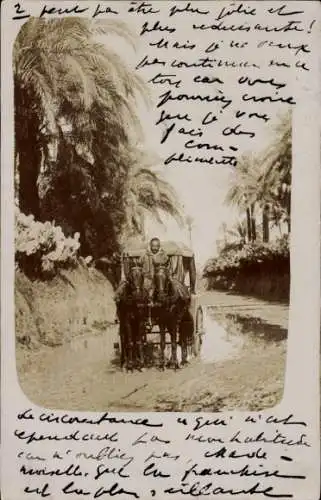 2 peut pas être plus jolie et
plus séduisante!
Mais je n'aurais
pas continuer un
car vous
pourriez croire
que je vous
fais des
com-
pliments
La circonstance qui n'est
cependant pas mon habitude
car n'oubliez pas, Made-
moiselle, que la franchise
est la plus